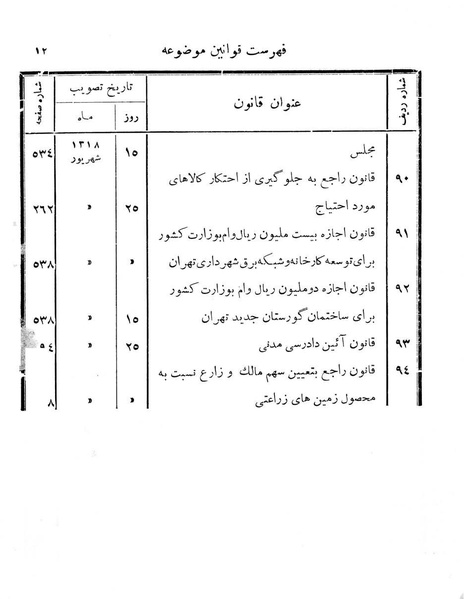 فهرست قوانین موضوعه ۱۲
شماره ردیف عنوان قانون تاریخ تصویب شماره صفحه
روز ماه
مجلس ۱۵ ۱۳۱۸ شهریور ۵۳٤
۹۰ قانون راجع به جلوگیری از احتکار کالاهای
مورد احتیاج ۲۵ » ۲٦۲
۹۱ قانون اجازه بیست ملیون ریال وام بوزارت کشور
برای توسعه کارخانه و شبکه برق شهرداری تهران » » ۵۳۸
۹۲ قانون اجازه دو ملیون ریال وام بوزارت کشور
برای ساختمان گورستان جدید تهران ۱۵ » ۵۳۸
۹۳ قانون آئین دادرسی مدنی ۲۵ » ۹٤
۹٤ قانون راجع بتعیین سهم مالك و زارع نسبت به
محصول زمین های زراعتی » » ۸